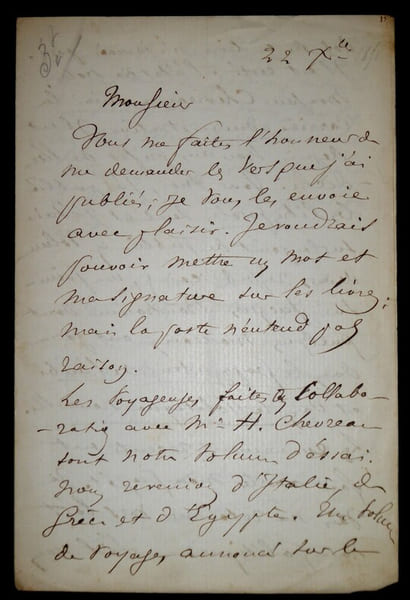 22 Xbre
Monsieur
Vous me faites l'honneur de
me demander les vers que j'ai
publiés; je vous les envoie
avec plaisir. Je voudrais
pouvoir mettre un mot et
ma signature sur les livres;
mais la poste n'entend pas
raison.
Les Voyageuses, faites en collabo-
-ration avec Mr H. Chevreau
sont notre volume d'essai.
nous revenions d'Italie, de
Grèce et d'Egypte. Un volume
de voyages, annoncé sur le